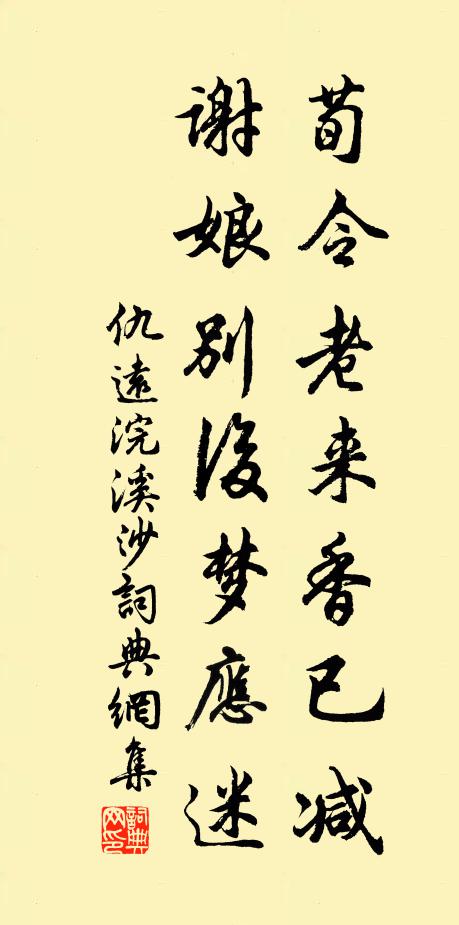 荀令老来香已减
谢娘别後梦應迷
仇遠浣溪沙詞典網集
詞典網印